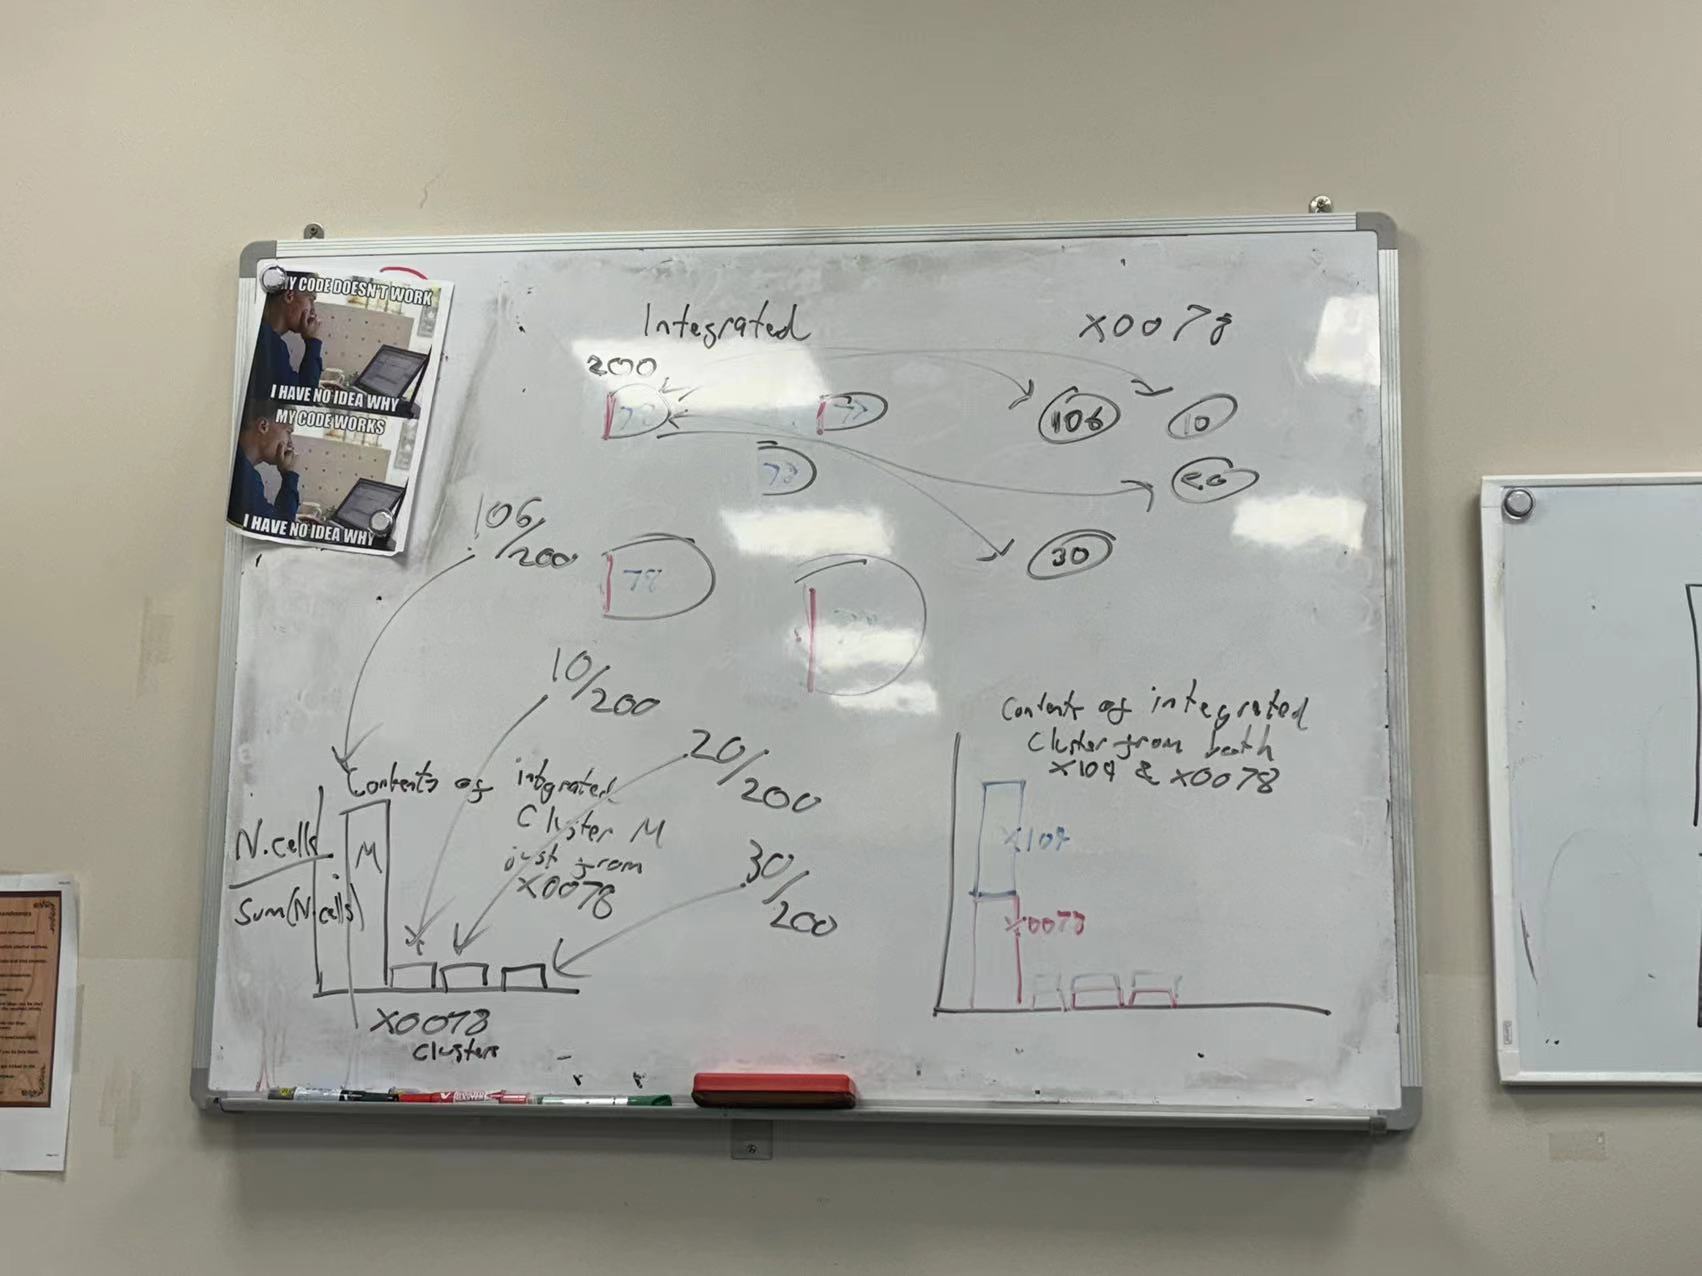 MY CODE DOESN'T WORK
I HAVE NO IDEA WHY
MY CODE WORKS
I HAVE NO IDEA WHY
Integrated
x0078
200
78
106
10
78
20
30
106/200
78
10/200
20/200
30/200
Contents of integrated
Cluster M
just from
x0078
N.cells
Sum(N.cells)
M
x0078
Clusters
Contents of integrated
Cluster from both
x109 & x0078
x109
x0078